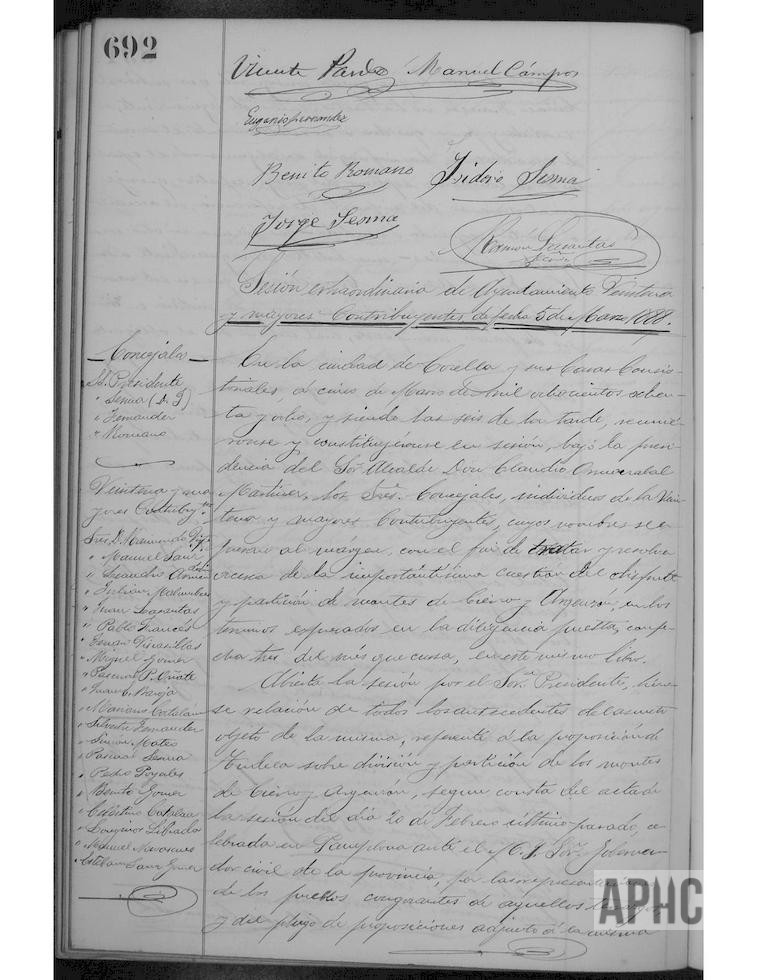 692
Vicente Pardo Manuel Cámpos
Eugenio Fernandez
Benito Romano Isidoro Sesma
Jorge Sesma
Ramon Lasantas
Secrio
Sesión extraordinaria de Ayuntamiento Veintena
y mayores Contribuyentes de fecha 5 de Marzo 1888.
Concejales
Sr. Presidente
" Sesma (D. J)
" Fernandez
" Romano
Veintena y ma-
yores Contribuy.tes
Sres. D. Raimundo
" Manuel Sanz
" Leandro
" Julian Malumbres
" Juan Lasantas
" Pablo Francés
" Vicasillas
" Miguel Gomez
" Pascual P. Oñate
" Juan C. Naroja
" Mariano Catalan
" Silvestre Fernandez
" Simón Mateo
" Pascual Sesma
" Pedro Poyales
" Benito Gomez
" Celestino Catalan
" Longinos Librada
" Manuel
" Esteban Sanz Gomez
En la ciudad de Corella y sus Casas Consis-
toriales, á cinco de Marzo de mil ochocientos ochen-
ta y ocho, y siendo las seis de la tarde, reunié-
ronse y constituyéronse en sesión, bajo la presi-
dencia del Sor. Alcalde Don Claudio
Martinez, los Sres. Concejales, individuos de la Vein-
tena y mayores Contribuyentes, cuyos nombres se ex-
presan al márgen, con el fin de tratar y resolver
acerca de la importantísima cuestión del disfrute
y partición de montes de Cierzo y Argenzón, en los
terminos espresados en la diligencia puesta, con fe-
cha tres del més que cursa, en este mismo libro.
Abierta la sesión por el Sor. Presidente, hízo-
se relación de todos los antecedentes del asunto
objeto de la misma, referente á la proposición de
Tudela sobre división y partición de los montes
de Cierzo y Argenzón, segun consta del acta de
la sesión del dia 20 de Febrero último pasado, ce-
lebrada en Pamplona ante el E. Sor. Goberna-
dor civil de la provincia, por las representaciones
de los pueblos congozantes de aquellos
y del pliego de proposiciones adjunto á la misma
APHC